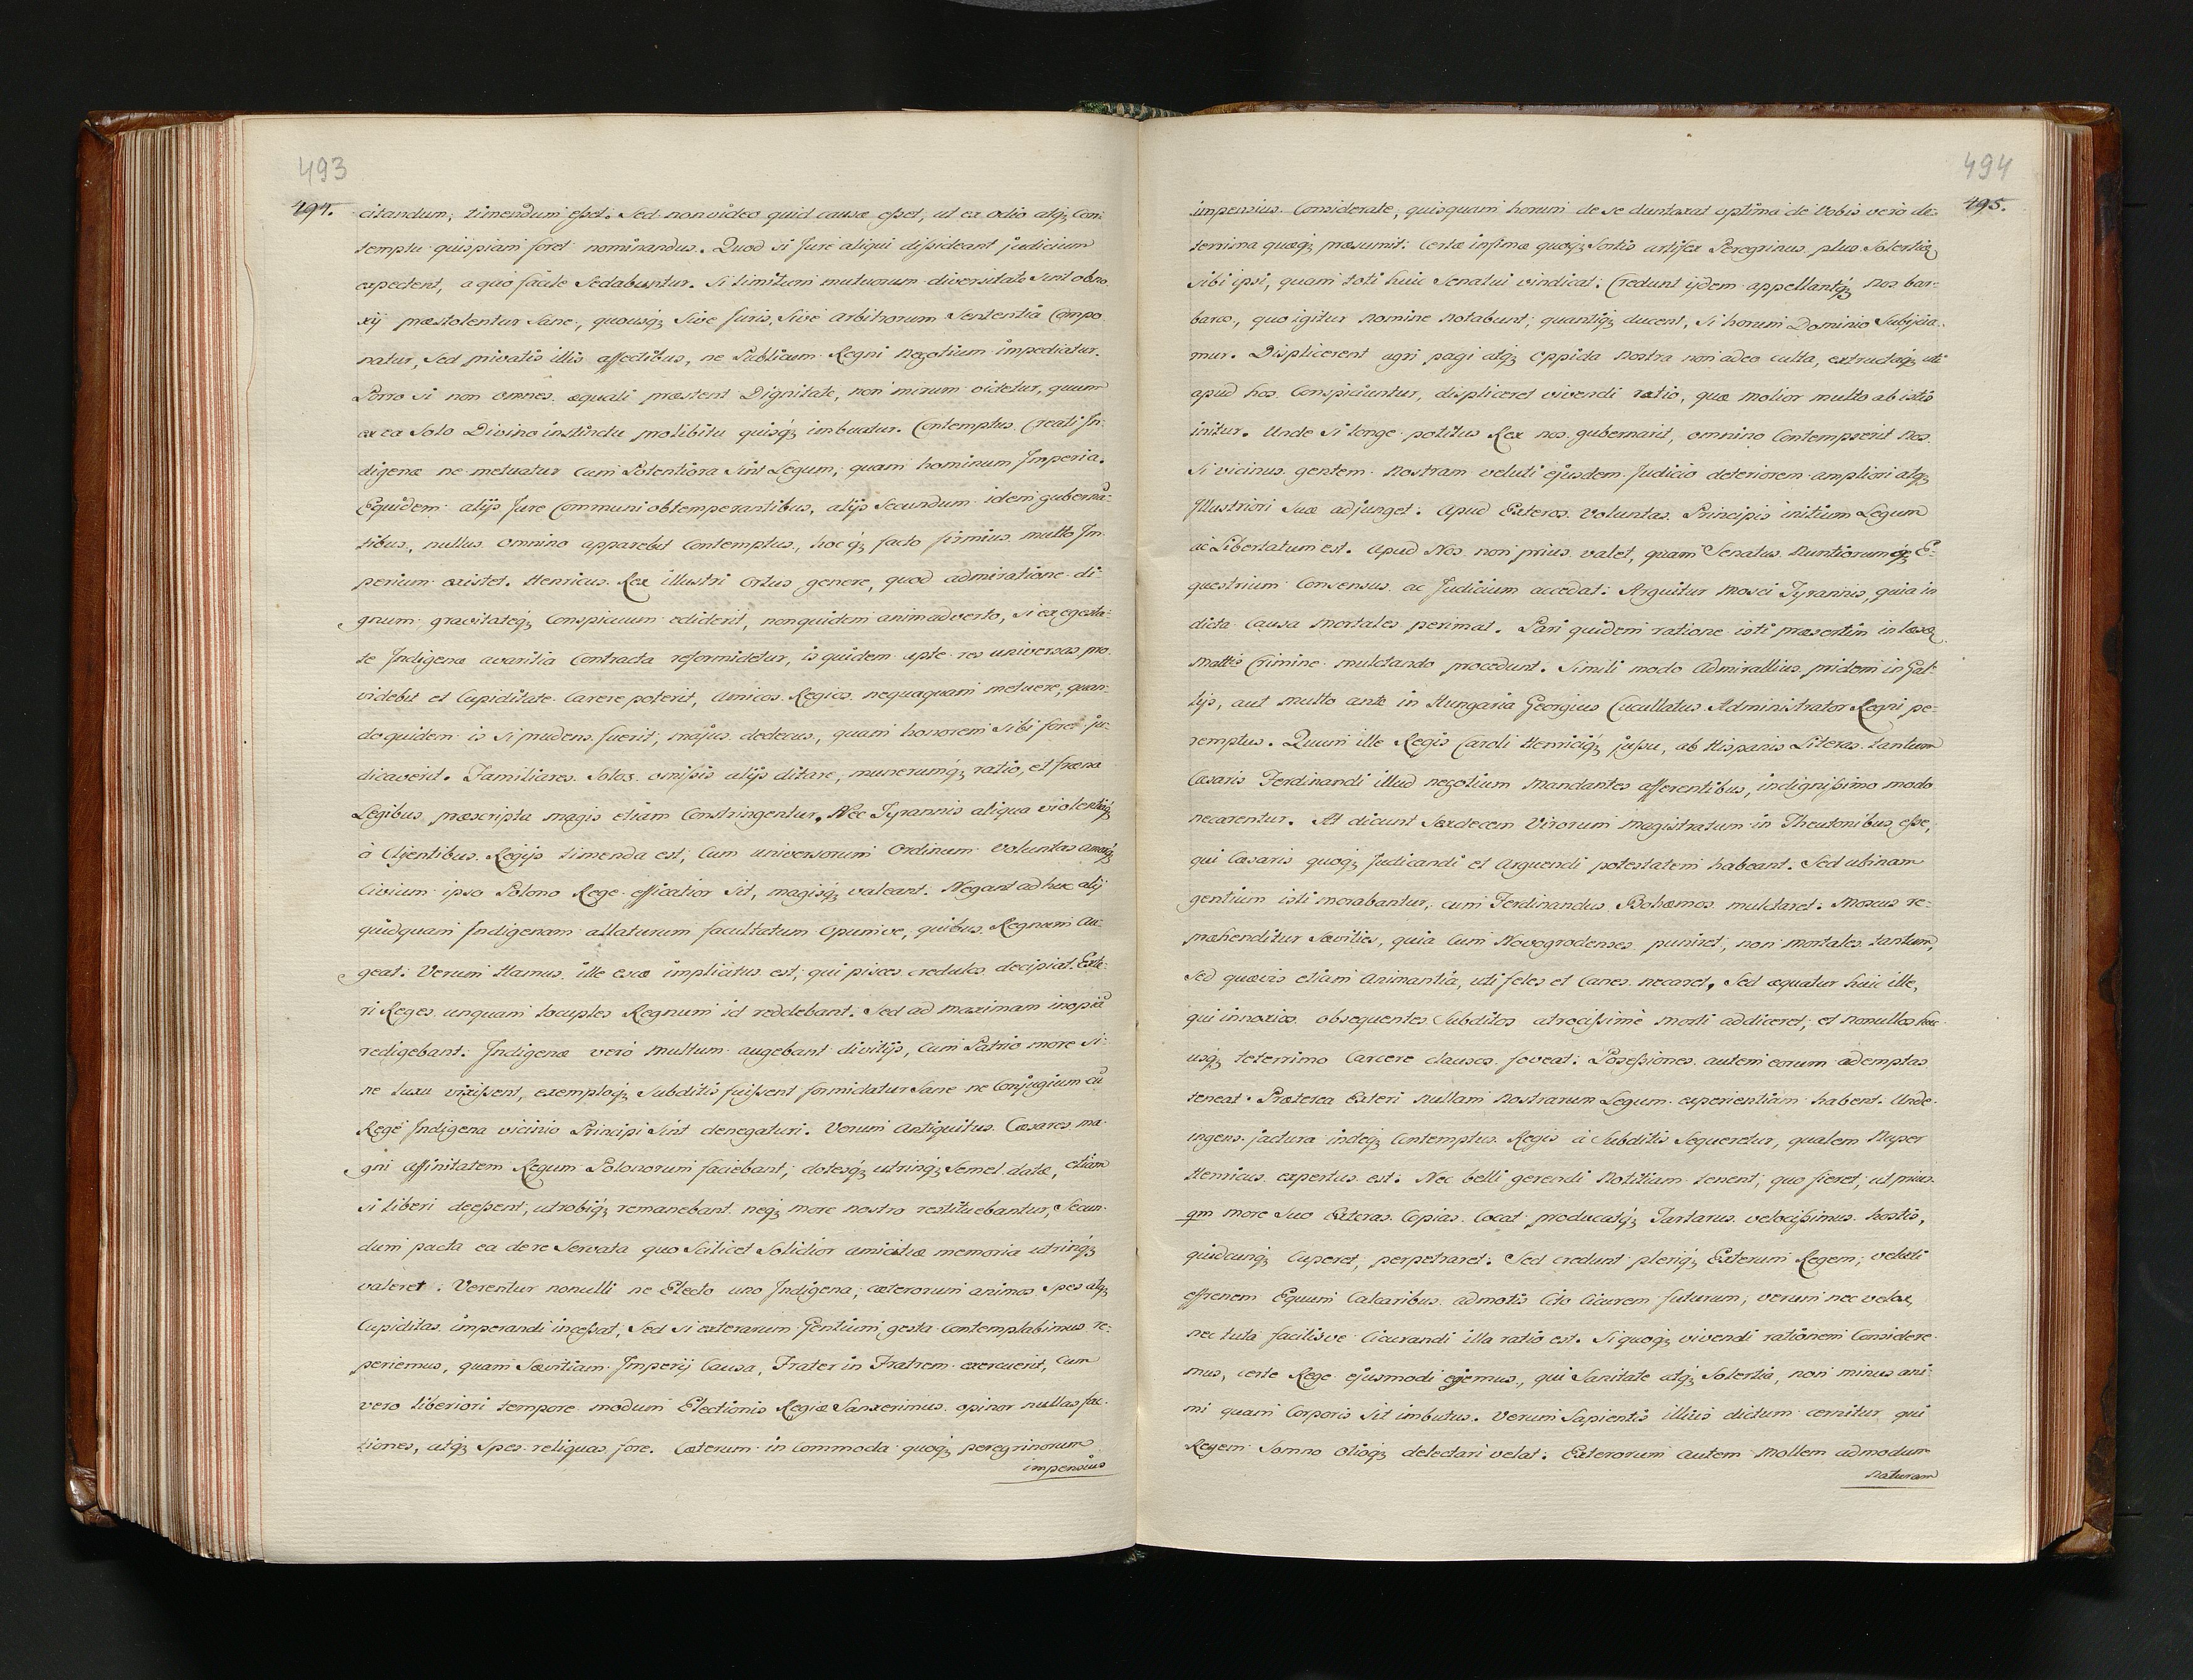 493
494. citandum, timendum esset. Sed non video quid causæ esset, ut ex odio atq; Con-
temptu quispiam foret nominandus. Quod si Jure aliqui dissideant judicium
expectent, a quo facile Sedabuntur. Si limitum mutuorum diversitate Sint obno
xij præstolentur Sane, quousq; Sive Juris, Sive Arbitrorum Sententia Compo
natur, Sed privatis illis affectibus, ne Publicum Regni Negotium impediatur.
Porro si non omnes æquali præstent Dignitate, non mirum videtur, quum
ex ea Solo Divino instinctu prolibitu quisq; imbuatur. Contemptus Creati In-
digenæ ne metuatur cum Potentiora Sint Legum, quam hominum Imperia.
Equidem alijs Jure Communi obtemperantibus, alijs Secundum idem guberna-
tibus, nullus omnino apparebit Contemptus, hoc q; facto firmius multo Im-
perium existet. Henricus Rex illustri Ortus genere, quod admiratione di-
gnum gravitateq; Conspicuum ediderit, non quidem animadverto, Si ex egesta-
te Indigenæ avaritia Contracta reformidetur, is quidem apte res universas pro
videbit et Cupiditate Carere poterit, Amicos Regios nequaquam metuere, quan-
do quidem is Si prudens fuerit, majus dedecus, quam honorem Sibi fore ju-
dicaverit. Familiares Solos omissis alijs ditare, munerumq; ratio, et fræna
Legibus præscripta magis etiam Constringentur. Nec Tyrannis aliqua violentiaq;
à Clientibus Regijs timenda est, Cum universorum Ordinum voluntas amorq;
Civium ipso Polono Rege efficatior Sit, magisq; valeant. Negant adhuc alij
quidquam Indigenam allaturum facultatum Opumve, quibus Regnum Au-
geat: Verum Hamus ille escæ implicitus est, qui pisces credulos decipiat. Exte-
ri Reges unquam locuples Regnum id reddebant. Sed ad maximam inopiã
redigebant. Indigenæ verò multum augebant divitijs, Cum Patrio more Si-
ne luxu vixissent, exemploq; Subditis fuissent formidatur Sane ne Conjugium cũ
Rege Indigena vicinio Principi Sint denegaturi. Verum Antiquitus Cæsares ma-
gni affinitatem Regum Polonorum faciebant, dotesq; utrinq; Semel datæ, etiam
si liberi deessent, utrobiq; remanebant neq; more nostro restituebantur, Secun-
dum pacta ea de re Servata quo Scilicet Solidior amicitiæ memoria utrinq;
valeret. Verentur nonulli ne Electo uno Indigena, cæterorum animos Spes atq;
Cupiditas imperandi incessat, Sed Si exterarum Gentium gesta Contemplabimus re-
periemus, quam Sævitiam Imperij Causa, Frater in Fratrem exercuerit, Cum
vero liberiori tempore modum Electionis Regiæ Sanxerimus opinor nullas fac-
tiones, atq; Spes reliquas fore. Cæterum in Commoda quoq; peregrinorum
impensius
494
495.
impensius Considerate, quisquam horum de se duntaxat optima de Vobis verò de-
terrima quæq; præsumit: Certæ infimæ quoq; Sortis artifex Peregrinus plus Solertiæ
sibi ipsi, quam toti huic Senatui vindicat. Credunt ijdem appellantq; Nos bar-
baros, quo igitur nomine notabunt, quantiq; ducent, Si horum Dominio Subijcia-
mur. Displicerent agri pagi atq; Oppida Nostra non adeo culta, extructaq; uti
apud hos Conspiciuntur, displiceret vivendi ratio, quæ molior multo ab istis
initur. Unde Si longe potitus Rex nos gubernarit, omnino Contempserit Nos.
Si vicinus gentem Nostram veluti ejusdem Judicio deteriorem ampliori atq;
Illustriori Suæ adjunget. Apud Exteros Voluntas Principis initium Legum
ac Libertatum est. Apud Nos non prius valet, quam Senatus Nuntiorumq; E-
questrium Consensus ac Judicium accedat. Arguitur Mosci Tyrannis, quia in
dicta Causa Mortales perimat. Pari quidem ratione isti præsertim in læsæ
Mattis Crimine mulctando procedunt. Simili modo Admirallius pridem in Gal-
lijs, aut multo ante in Hungaria Georgius Cucullatus Administrator Regni pe-
remptus. Quum ille Regis Caroli Henriciq; jussu, ab Hispanis Literas tantum
Cæsaris Ferdinandi illud negotium Mandantes asserentibus, indignissimo modo
necarentur. At dicunt Sexdecem Virorum Magistratum in Theutonibus esse,
qui Cæsaris quoq; Judicandi et Arguendi potestatem habeant. Sed ubinam
gentium isti morabantur, cum Ferdinandus Bohæmos mulctaret. Moscus re-
præhenditur Sævities, quia Cum Novogrodenses puniret, non mortales tantum,
sed quævis etiam Animantia, uti feles et Canes necaret. Sed æquatur huic ille,
qui innoxios obsequentes Subditos atrocissimè morti addiceret, et nonullos huc
usq; teterrimo Carcere clausos foveat. Possessiones autem eorum ademptas
teneat. Præterea Exteri nullam Nostrarum Legum experientiam habent. Unde
ingens jactura indeq; Contemptus Regis à Subditis Sequeretur, qualem Nuper
Henricus expertus est. Nec belli gerendi Notitiam tenent, quo fieret, ut prius
qm more Suo Exteras Copias Cocat producatq; Tartarus velocissimus hostis,
quidcunq; Cuperet, perpetraret. Sed credunt pleriq; Exterum Regem, veluti
effrenem Equum Calcaribus admotis Cito Cicurem futurum, verum nec velox,
nec tuta facilisve Cicurandi illa ratio est. Si quoq; vivendi rationem Considere-
mus, certe Rege ejusmodi egemus, qui Sanitate atq; Solertia, non minus ani-
mi quam Corporis Sit imbutus. Verum Sapientis illius dictum cernitur qui
Regem Somno Otioq; delectari vetat. Exterorum autem Mollem admodum
Naturam